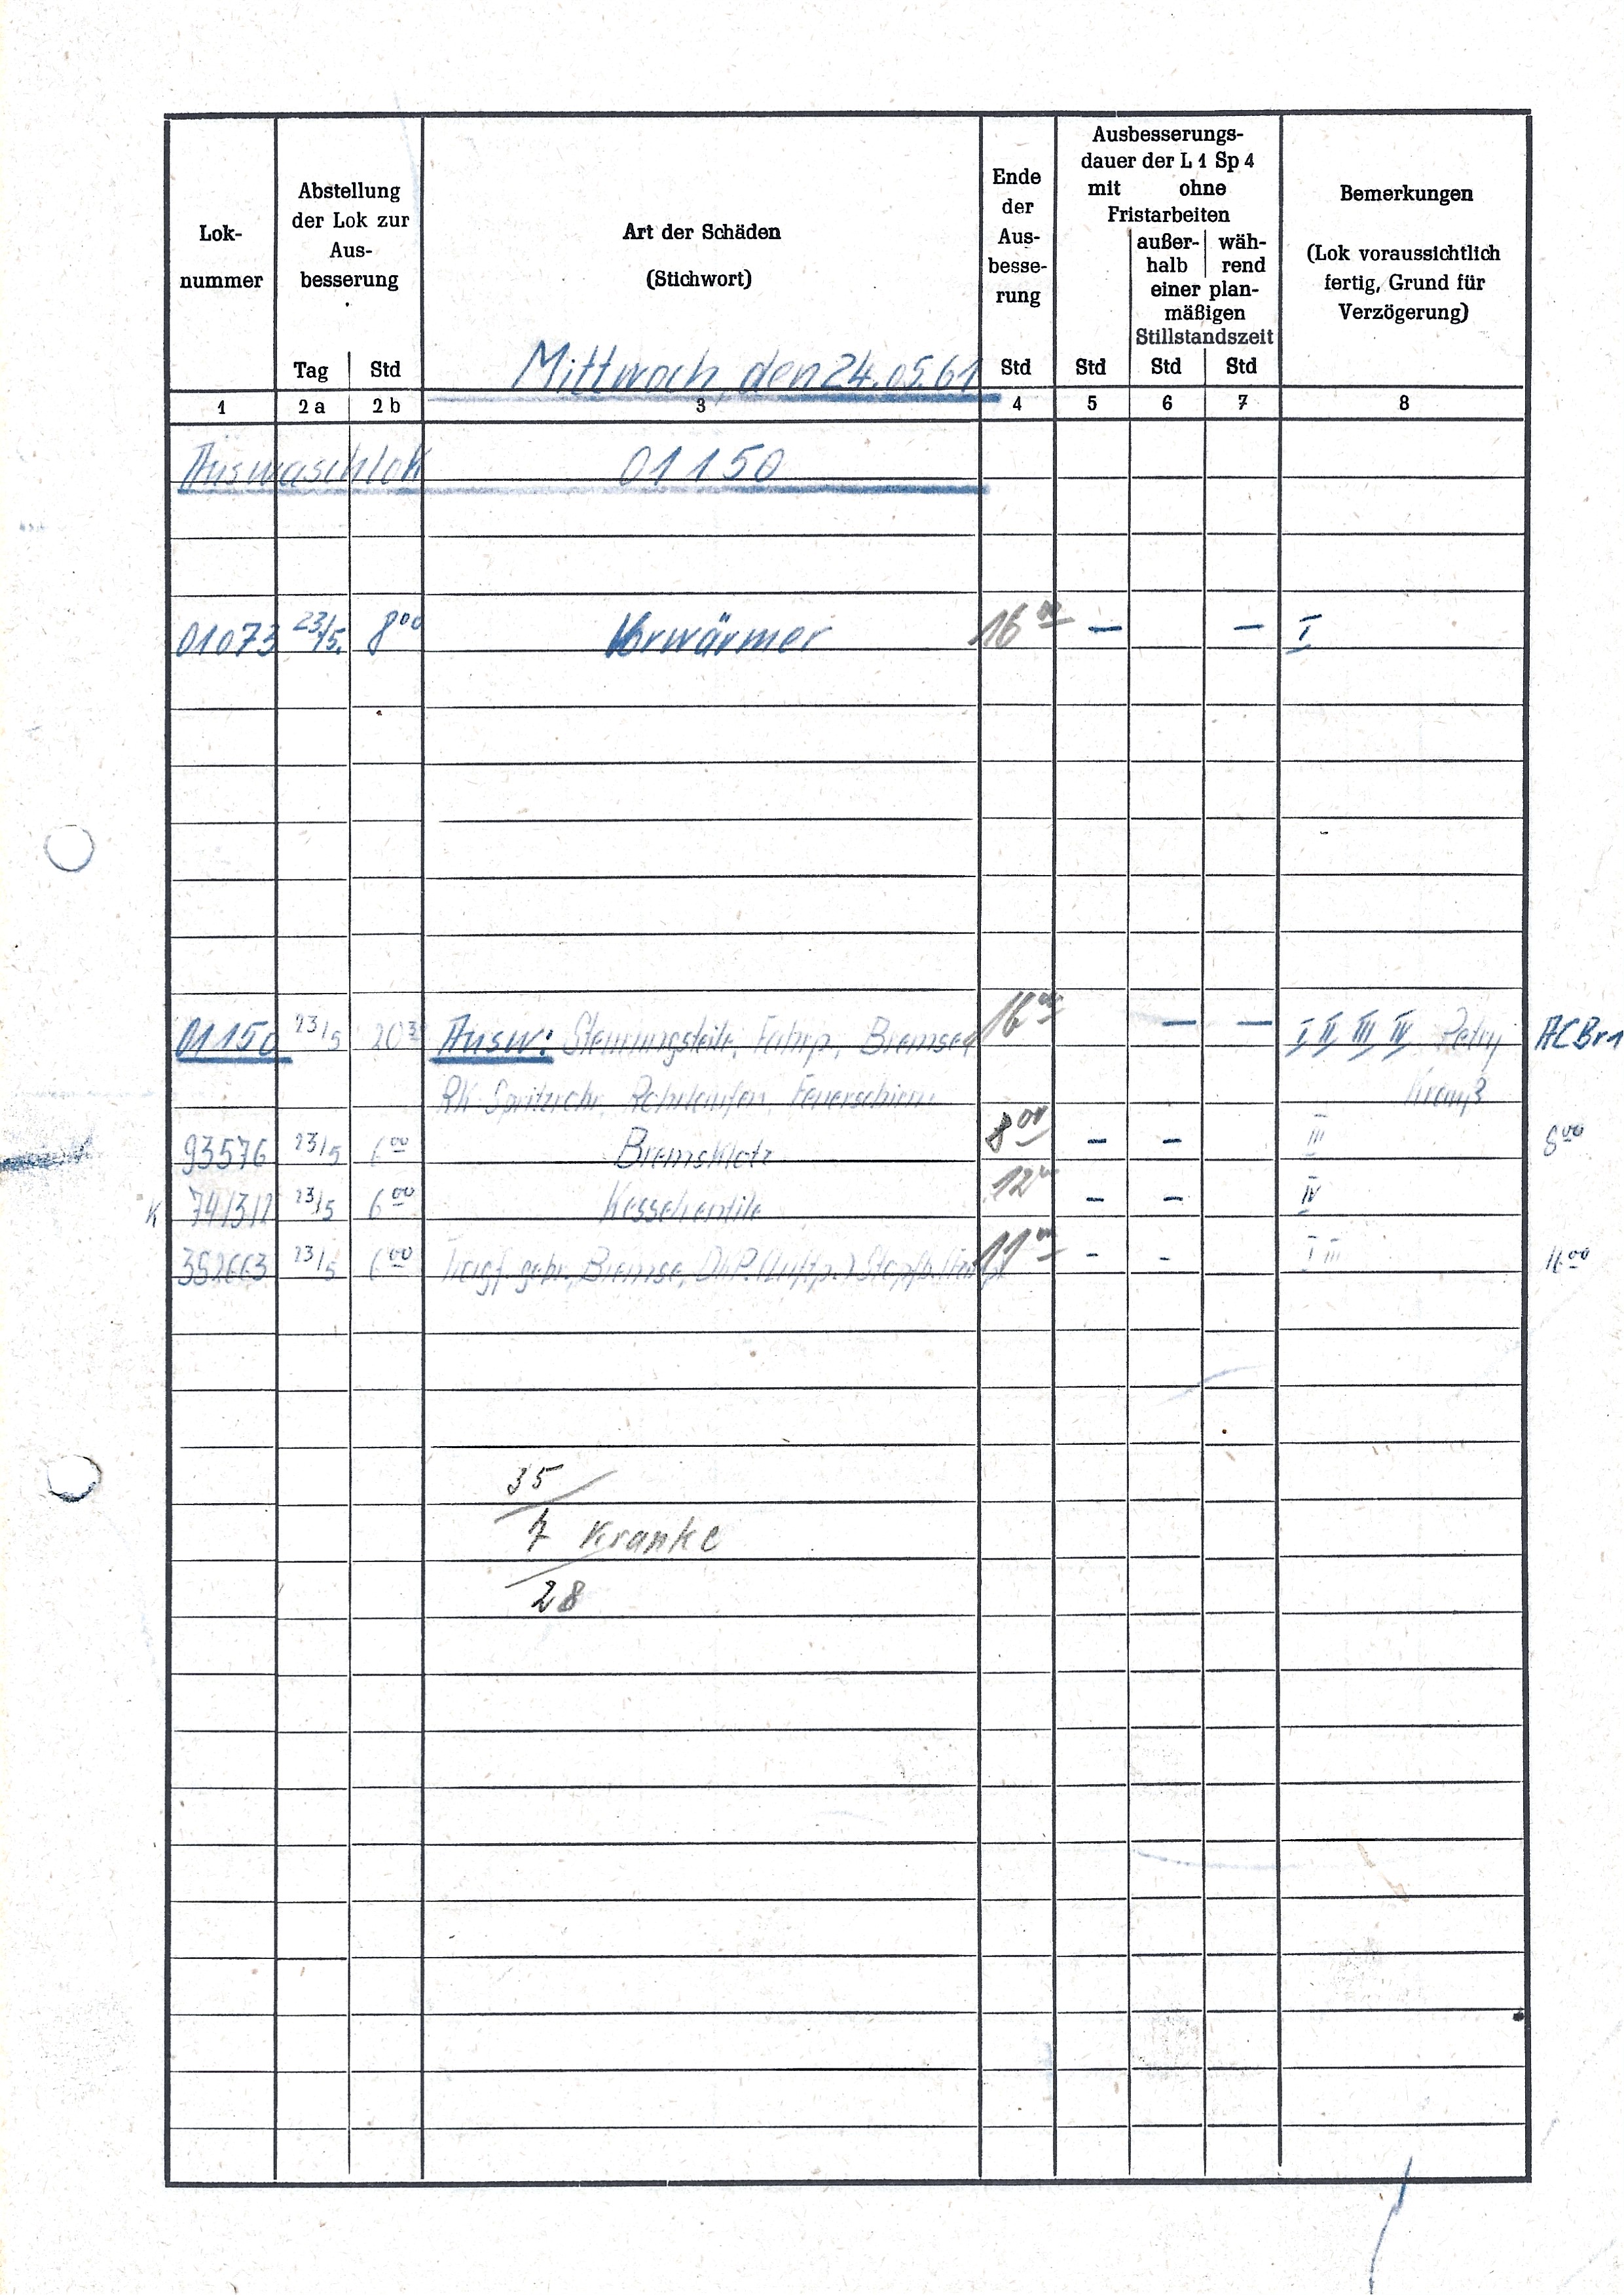 Lok-
nummer
Abstellung
der Lok zur
Aus-
besserung
Tag Std
Art der Schäden
(Stichwort)
Mittwoch, den 24.05.61
Ende
der
Aus-
besse-
rung
Std
Ausbesserungs-
dauer der L 1 Sp 4
mit ohne
Fristarbeiten
außer- wäh-
halb rend
einer plan-
mäßigen
Stillstandszeit
Std Std Std
Bemerkungen
(Lok voraussichtlich
fertig, Grund für
Verzögerung)
1 2 a 2 b 3 4 5 6 7 8
Auswaschlok 01150
01073 23/5. 8 00 Vorwärmer 16 00 — — I
01150 23/5 Ausw: Steuerungsteile, Fahrp, Bremse, 16 00 — — I II III IV Petry ACBr1
RK Spritzrohr, Rohrlaufen, Feuerschirm
93576 23/5 6 00 Bremsklotz 8 00 - - III 8 00
K 741311 23/5 6 00 Kesselventile 12 00 - - IV
23/5 6 00 Tragf. gebr., Bremse, 11 00 - - I III 11 00
35
7 Kranke
28